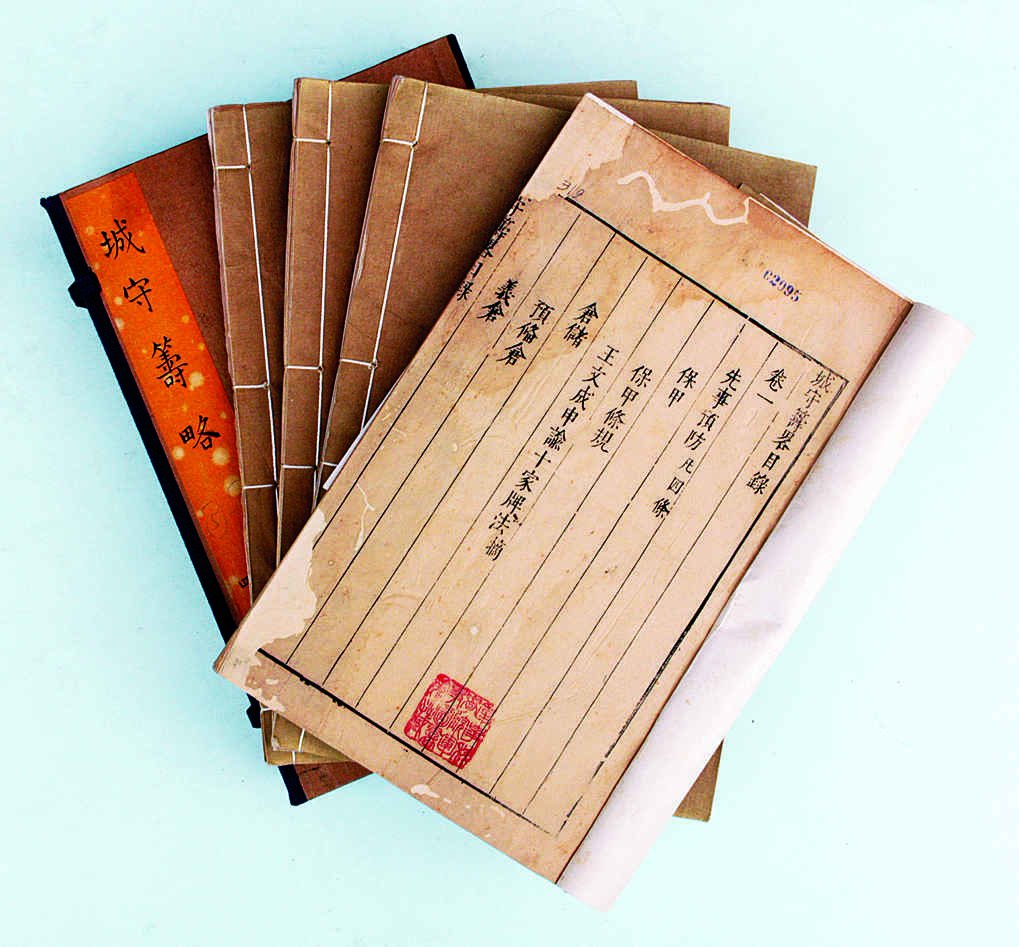 城守籌略
城守籌畧目錄
卷一
先事預防凡四條
保甲
保甲條規
王文成申諭十家牌法摘
倉儲
預備倉
義倉
守籌畧目錄
39
02095